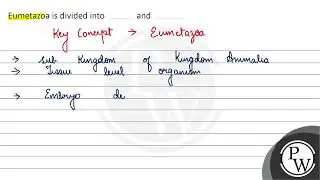 Eumetazoa is divided into ______ and
Key Concept → Eumetazoa
→ Sub Kingdom of Kingdom Animalia
→ Tissue level organism
→ Embryo de
PW